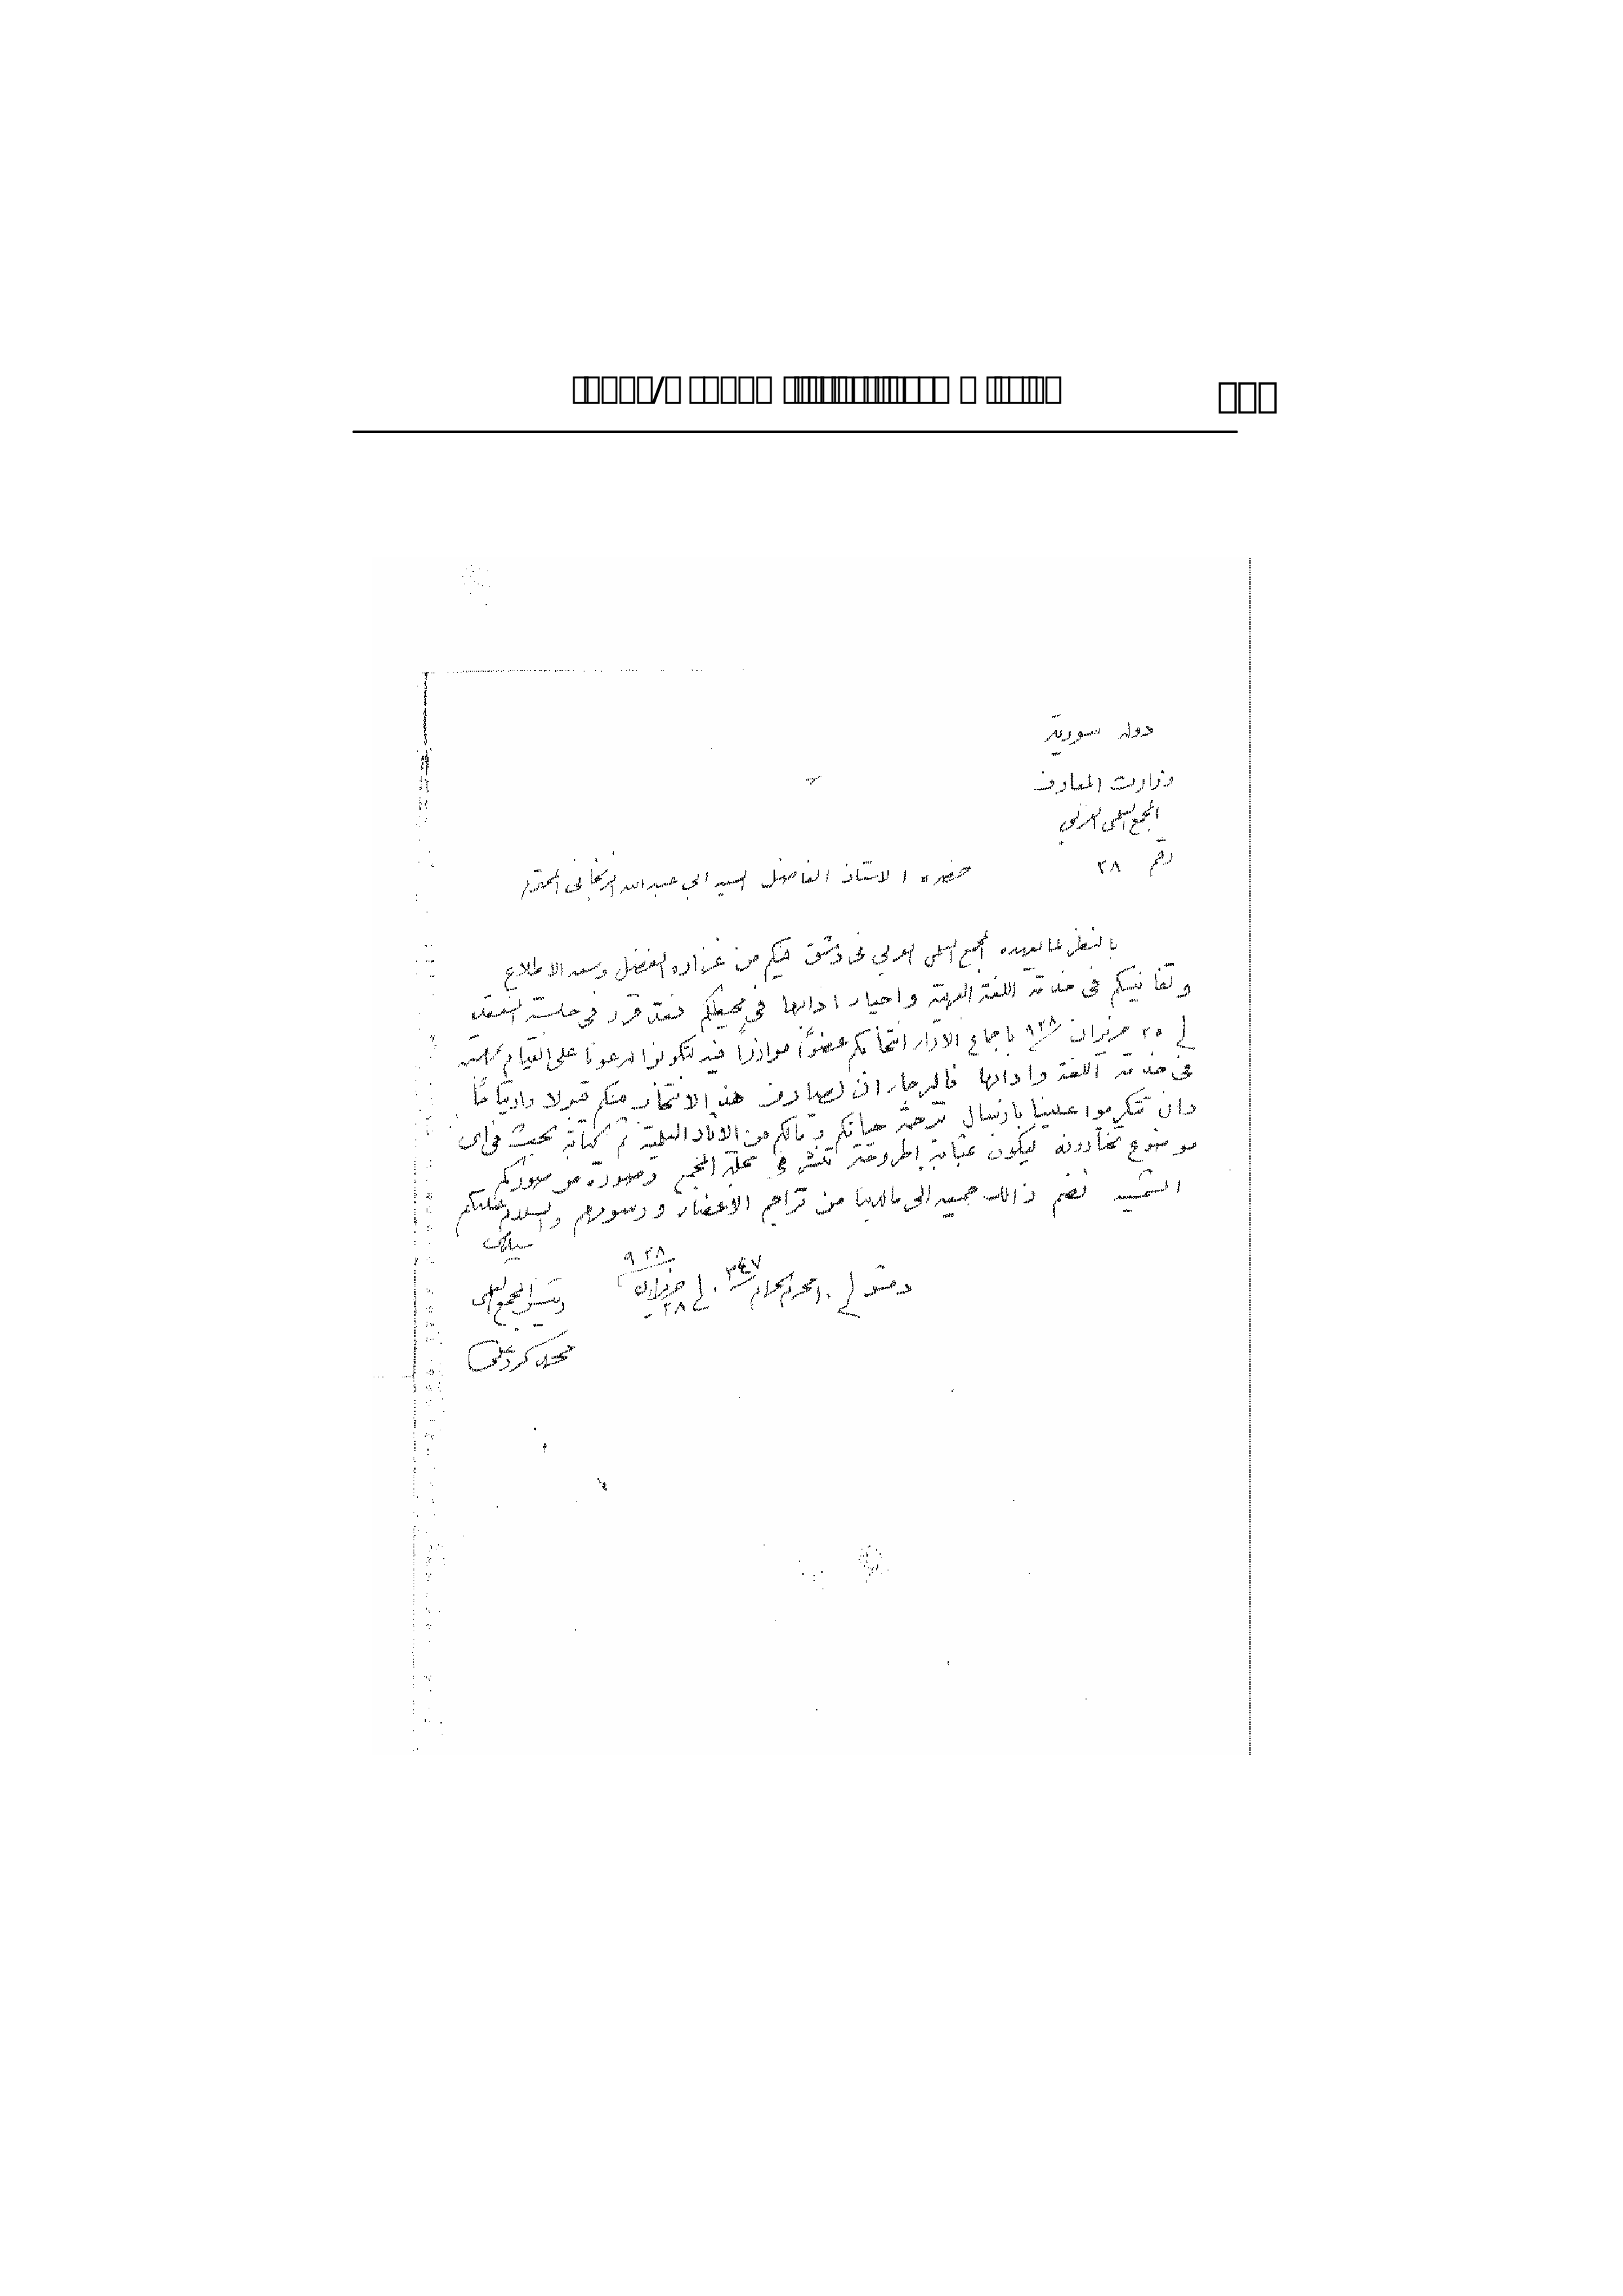 دولة سورية
وزارت المعارف
المجمع العلمي العربي
رقم ٢٨
حضرة الاستاذ الفاضل السيد ابي عبد الله الزنجاني المحترم
بالنظر لما يعهده المجمع العلمي العربي في دمشق فيكم من غزارة الفضل وسعة الاطلاع
وتفانيكم في خدمة اللغة العربية واحياء ادابها في محيطكم فقد قرر في جلسته المنعقدة
في ٢٥ حزيران ٩٢٨ باجماع الآراء انتخابكم عضوًا موازرًا فيه لتكونوا لنا عونا على القيام
في خدمة اللغة وادابها فالرجاء ان يصادف هذا الانتخاب منكم قبولا وارتياحًا
وان تتكرموا علينا بارسال ترجمة حياتكم وما لكم من الآثار العلمية ثم كتابة بحث في اى
موضوع تختارونه ليكون بمثابة اطروحة تنشر في مجلة المجمع وصورة من صوركم
الشمسية نضم ذالك جميعه الى ما لدينا من تراجم الاعضاء ورسومهم والسلام عليكم
دمشق في ١٠ محرم الحرام ٣٤٧ في ٢٨ حزيران ٩٢٨
رئيس المجمع العلمى
محمد كرد على